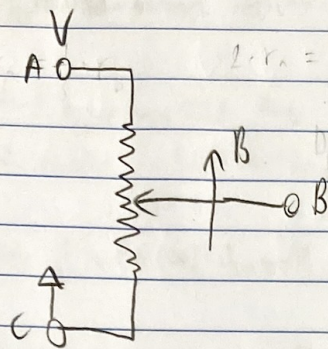 V
A
B
B
C